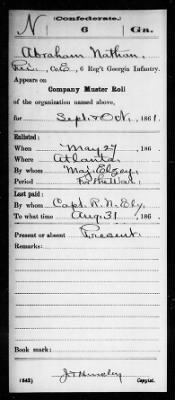 (Confederate.)
N 6 Ga.
Abraham Nathan,
Pvt., Co. E, 6 Reg't Georgia Infantry.
Appears on
Company Muster Roll
of the organization named above,
for Sept & Oct, 1861.
Enlisted:
When May 27, 186 .
Where Atlanta
By whom Maj. Elzey
Period For the War
Last paid:
By whom Capt. R. N. Ely
To what time Aug. 31, 186 .
Present or absent Present
Remarks:
Book mark:
(642) Copyist.